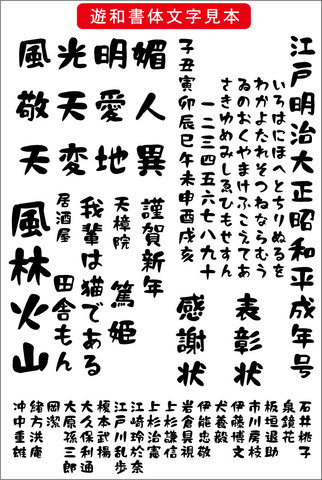 遊和書体文字見本
江戸明治大正昭和平成年号
いろはにほへとちりぬるを
わかよたれそつねならむう
ゐのおくやまけふこえてあ
さきゆめみしゑひもせすん
一二三四五六七八九十
子丑寅卯辰巳午未申酉戌亥
媚人異
明愛地
光天変
風敬天
表彰状
感謝状
謹賀新年
天樟院 篤姫
我輩は猫である
居酒屋 田舎もん
風林火山
石井桃子
泉鏡花
板垣退助
市川房枝
伊藤博文
犬養毅
伊能忠敬
岩倉具視
上杉謙信
上杉治憲
江崎玲於奈
江戸川乱歩
榎本武揚
大久保利通
大原孫三郎
岡潔
緒方洪庵
沖中重雄